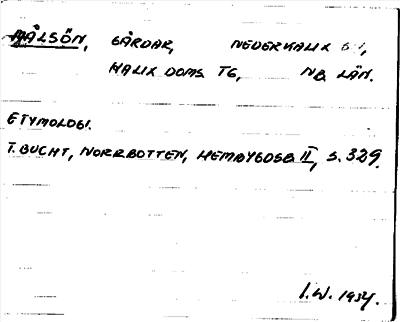 MÅLSÖN, GÅRDAR, NEDERKALIX
KALIX DOMS. TG, NB. LÄN.
ETYMOLOGI.
T. BUCHT, NORRBOTTEN, HEMBYGDSB. II, S. 329.
I.W. 1934.